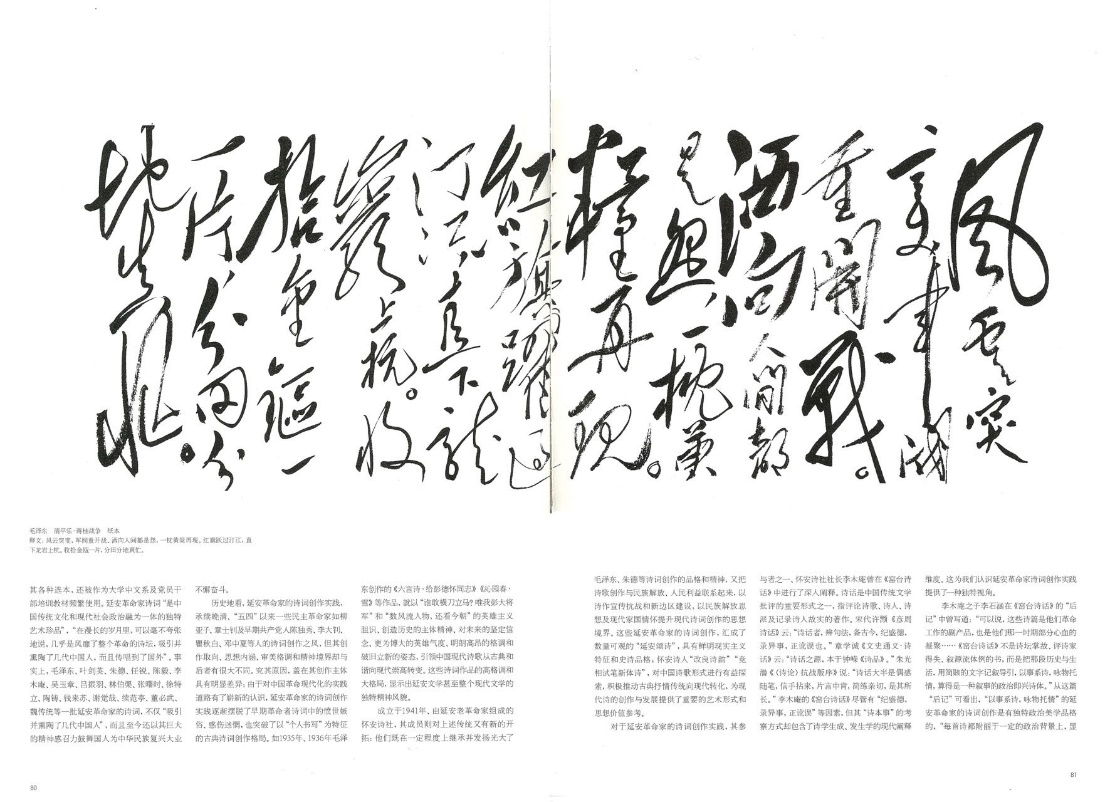 风云突
变军阀
重開戰。
洒向人间都
是怨，一枕黄
粱再现。
红旗躍过
汀江直下龙
岩上杭。收
拾金甌一
片，分田分
地真忙
毛泽东 清平乐·蒋桂战争 纸本
释文：风云突变，军阀重开战。洒向人间都是怨，一枕黄粱再现。红旗跃过汀江，直
下龙岩上杭。收拾金瓯一片，分田分地真忙。
其各种选本，还被作为大学中文系及党员干
部培训教材频繁使用。延安革命家诗词“是中
国传统文化和现代社会政治融为一体的独特
艺术珍品”，“在漫长的岁月里，可以毫不夸张
地说，几乎是风靡了整个革命的诗坛，吸引并
熏陶了几代中国人，而且传唱到了国外”。事
实上，毛泽东、叶剑英、朱德、任锐、陈毅、李
木庵、吴玉章、吕振羽、林伯渠、张曙时、徐特
立、陶铸、钱来苏、谢觉哉、续范亭、董必武、
魏传统等一批延安革命家的诗词，不仅“吸引
并熏陶了几代中国人”，而且至今还以其巨大
的精神感召力鼓舞国人为中华民族复兴大业
不懈奋斗。
历史地看，延安革命家的诗词创作实践，
承续晚清、“五四”以来一些民主革命家如柳
亚子、章士钊及早期共产党人陈独秀、李大钊、
瞿秋白、邓中夏等人的诗词创作之风，但其创
作取向、思想内涵、审美格调和精神境界却与
后者有很大不同。究其原因，盖在其创作主体
具有明显差异：由于对中国革命现代化的实践
道路有了崭新的认识，延安革命家的诗词创作
实践逐渐摆脱了早期革命者诗词中的愤世嫉
俗、悠伤迷惘，也突破了以“个人书写”为特征
的古典诗词创作格局。如1935年、1936年毛泽
东创作的《六言诗·给彭德怀同志》《沁园春·
雪》等作品，就以“谁敢横刀立马？唯我彭大将
军”和“数风流人物，还看今朝”的英雄主义
胆识、创造历史的主体精神，对未来的坚定信
念、更为博大的英雄气度、明朗高昂的格调和
破旧立新的姿态，引领中国现代诗歌从古典和
谐向现代崇高转变。这些诗词作品的高格调和
大格局，显示出延安文学甚至整个现代文学的
独特精神风貌。
成立于1941年、由延安老革命家组成的
怀安诗社，其成员则对上述传统又有新的开
拓：他们既在一定程度上继承并发扬光大了
毛泽东、朱德等诗词创作的品格和精神，又把
诗歌创作与民族解放、人民利益联系起来，以
诗作宣传抗战和新边区建设，以民族解放思
想及现代家国情怀提升现代诗词创作的思想
境界。这些延安革命家的诗词创作，汇成了
数量可观的“延安雅诗”，具有鲜明现实主义
特征和史诗品格。怀安诗人“改良诗韵”“竞
相试笔新体诗”，对中国诗歌形式进行有益探
索，积极推动古典抒情传统向现代转化，为现
代诗的创作与发展提供了重要的艺术形式和
思想价值参考。
对于延安革命家的诗词创作实践，其参
与者之一、怀安诗社社长李木庵曾在《窑台诗
话》中进行了深入阐释。诗话是中国传统文学
批评的重要形式之一，指评论诗歌、诗人、诗
派及记录诗人故实的著作。宋代许顗《彦周
诗话》云：“诗话者，辨句法，备古今，纪盛德，
录异事，正讹误也。”章学诚《文史通义·诗
话》云：“诗话之源，本于钟嵘《诗品》。”朱光
潜《〈诗论〉抗战版序》说：“诗话大半是偶感
随笔，信手拈来，片言中肯，简练亲切，是其所
长。”李木庵的《窑台诗话》尽管有“纪盛德，
录异事，正讹误”等因素，但其“诗本事”的考
察方式却包含了诗学生成、发生学的现代阐释
维度。这为我们认识延安革命家诗词创作实践
提供了一种独特视角。
李木庵之子李石涵在《窑台诗话》的“后
记”中曾写道：“可以说，这些诗篇是他们革命
工作的副产品，也是他们那一时期部分心血的
凝聚……《窑台诗话》不是诗坛掌故、评诗家
得失、叙源流体例的书，而是把那段历史与生
活，用简额的文字记叙导引，以事系诗，咏物托
情，算得是一种叙事的政治即兴诗体。”从这篇
“后记”可看出，“以事系诗，咏物托情”的延
安革命家的诗词创作是有独特政治美学品格
的。“每首诗都附丽于一定的政治背景上，显
80
81